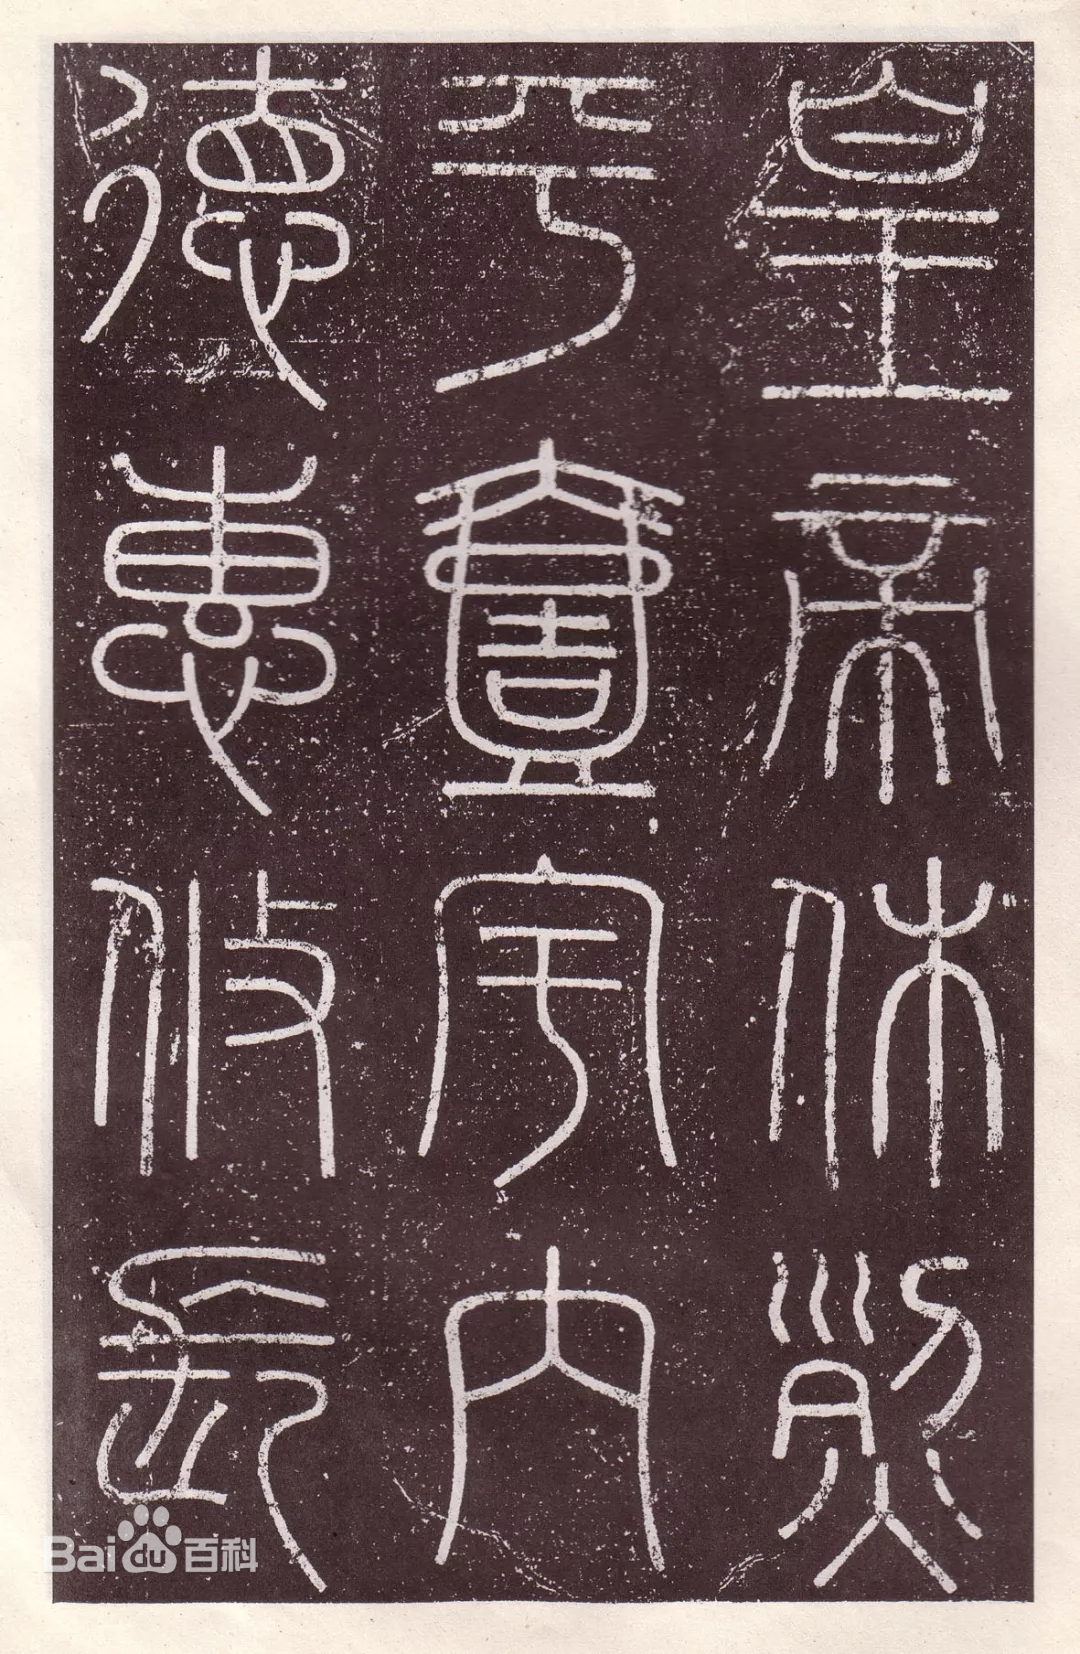 皇帝休烈
平壹宇内
德惠攸長
Bai du 百科